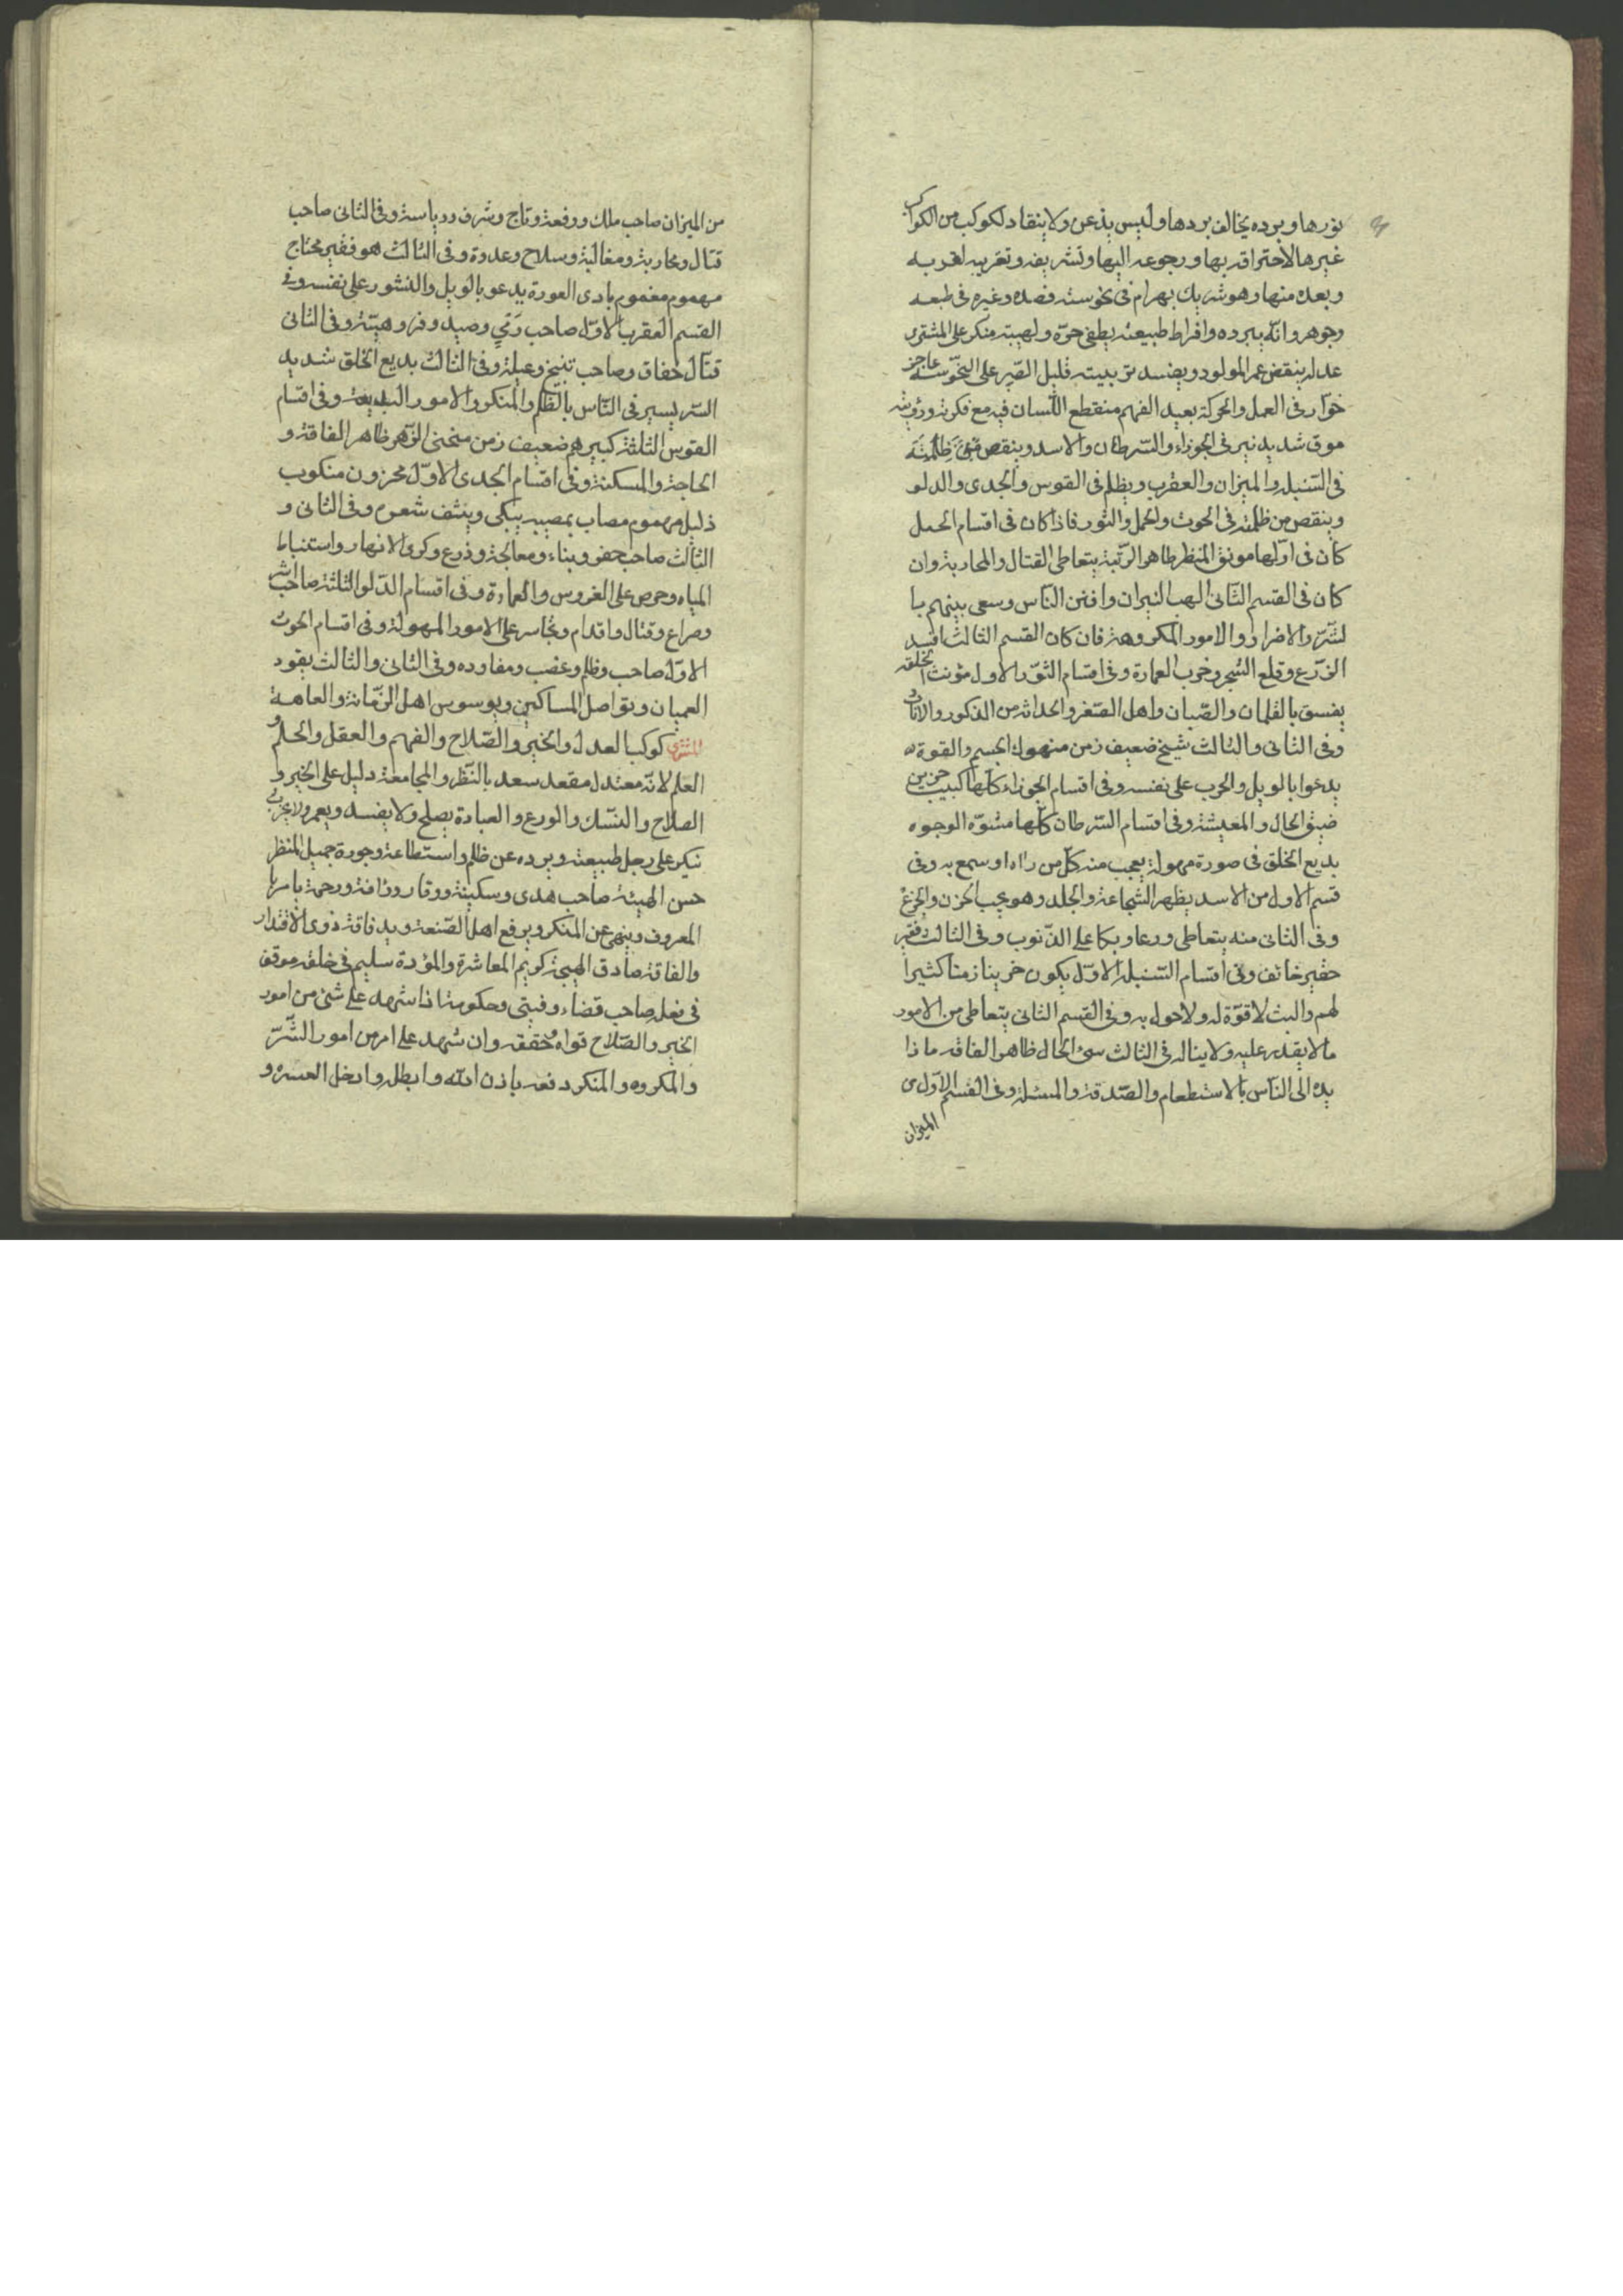 نورها وبرده يخالف بردها وليس يذعن ولا ينقاد لكوكب من الكواكب
غيرها لاحتراقه بها ورجوعه اليها وتشريفه وتغريبه لقربه
وبعده منها وهو شريك بهرام فى نحوسته وغيره فى طبعه
وجوهره وانّه ببرده وافراط طبيعته يطفى حرّه ولهيبه منكر على المشترى
عدله ينقض عمر المولود ويفسد تربيته قليل الصّبر على عاجز
خوّار فى العمل والحركة بعيد الفهم منقطع اللّسان فيه مع فكرته ورؤيته
موق شديد نير فى الجوزاء والسّرطان والاسد وينقص
فى السّنبله والميزان والعقرب ويظلم فى القوس والجدى والدلو
وينقص من ظلمته فى الحوت والحمل والثور فاذا كان فى اقسام الحمل
كان فى اوّلها مونق المنظر ظاهر الرّتبة يتعاطى القتال والمحاربة وان
كان فى القسم الثّانى الهب النيران وافتن النّاس وسعى بينهم با
لشّرّ والاضرار والامور المكروهة فان كان القسم الثالث افسد
الزّرع وقلع الشجر وخرب العمارة وفى اقسام الثّور الاول مؤنث الخلقه
يفسق بالغلمان والصّبان واهل الصّغر والحداثه من الذكور والاناث
وفى الثانى والثالث شيخ ضعيف زمن منهوك الجسم والقوة
يدعوا بالويل والحرب على نفسه وفى اقسام الجوزاء كلّها كئيب حزين
ضيق الحال والمعيشة وفى اقسام السّرطان كلّها مشوّه الوجوه
بديع الخلق فى صورة مهولة يعجب منه كلّ من راه او سمع به وفى
قسم الاول من الاسد يظهر الشجاعة والجلد وهو يحب الحزن والجزع
وفى الثانى منه يتعاطى ورعا وبكا على الذّنوب وفى الثالث فقير
حقير خائف وفى اقسام السّنبله الاوّل يكون حزينا زمنا كثيرا
لهم والبث لا قوّة له ولا حول به وفى القسم الثانى يتعاطى من الامور
ما لا يقدر عليه ولا يناله فى الثالث سئ الحال ظاهر الفاقه ماذا
يده الى النّاس بالاستطعام والصّدقة والمسئلة وفى القسم الاوّل من
الميزان
من الميزان صاحب ملك ورفعة وتاج وشرف ورياسة وفى الثانى صاحب
قتال ومحاربة ومغالبة وسلاح وعدوة وفى الثالث هو فقير محتاج
مهموم مغموم بادى العورة يدعو بالويل والثبور على نفسه وفى
القسم العقرب الاوّل صاحب رَمْي وصيد وهيئة وفى الثانى
قتّال خفاق وصاحب وفى الثالث بديع الخلق شديد
السّر يسير فى النّاس بالظّلم والمنكر والامور البديعة وفى اقسام
القوس الثلثة كبير هم ضعيف زمن منحنى الظّهر ظاهر الفاقة و
الحاجة والمسكنة وفى اقسام الجدى الاوّل محزون منكوب
ذليل مهموم مصاب بمصيبه يبكى وينتف شعره وفى الثانى و
الثالث صاحب حفر وبناء ومعالجة وزرع وكرى الانهار واستنباط
المياه وحرص على الغروس والعمارة وفى اقسام الدّلو الثلثة صاحب اشر
وصراع وقتال واقدام وتجاسر على الامور المهولة وفى اقسام الحوت
الاوّل صاحب وظلم وغضب ومفاوده وفى الثانى والثالث يقود
العميان ويواصل المساكين ويوسوس اهل الزّمانة والعاهة
المشترى كوكب العدل والخير والصّلاح والفهم والعقل والحلم و
العلم لانّه معتدل مقعد سعد بالنّظر والمجامعة دليل على الخير و
الصلاح والنّسك والورع والعبادة يصلح ولا يفسد ويعمر ولا يخرب
نيكر على رجل طبيعته وبرده عن ظلم واستطاعة وجورة جميل المنظر
حسن الهيئة صاحب هدى وسكينة ووقار ورافة ورحمة يامر با
المعروف وينهى عن المنكر ويرفع اهل الصّنعة ويد فاقة ذوى الاقتدار
والفاقة صادق الهيجة كريم المعاشرة والمؤدة سليم فى خلقه موفق
فى فعله صاحب قضاء وفيتى وحكومة اذا شهد على شئ من امور
الخير والصّلاح قواه وحققه وان شهد على امر من امور الشّرّ
والمكروه والمنكر دفعه باذن الله وابطله وادخل العسرة و